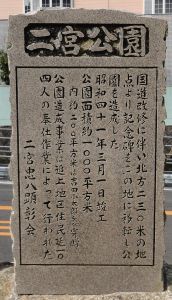 二宮公園
国道改修に伴い北方二三〇米の地
点より記念碑をこの地に移転し公
園を造成した
昭和四十一年三月一日竣工
公園面積約一〇〇〇平方米
内約二〇〇平方米は
公園造成事業は地上地区住民延一〇
四人の奉仕作業によって行われた
二宮忠八顕彰会